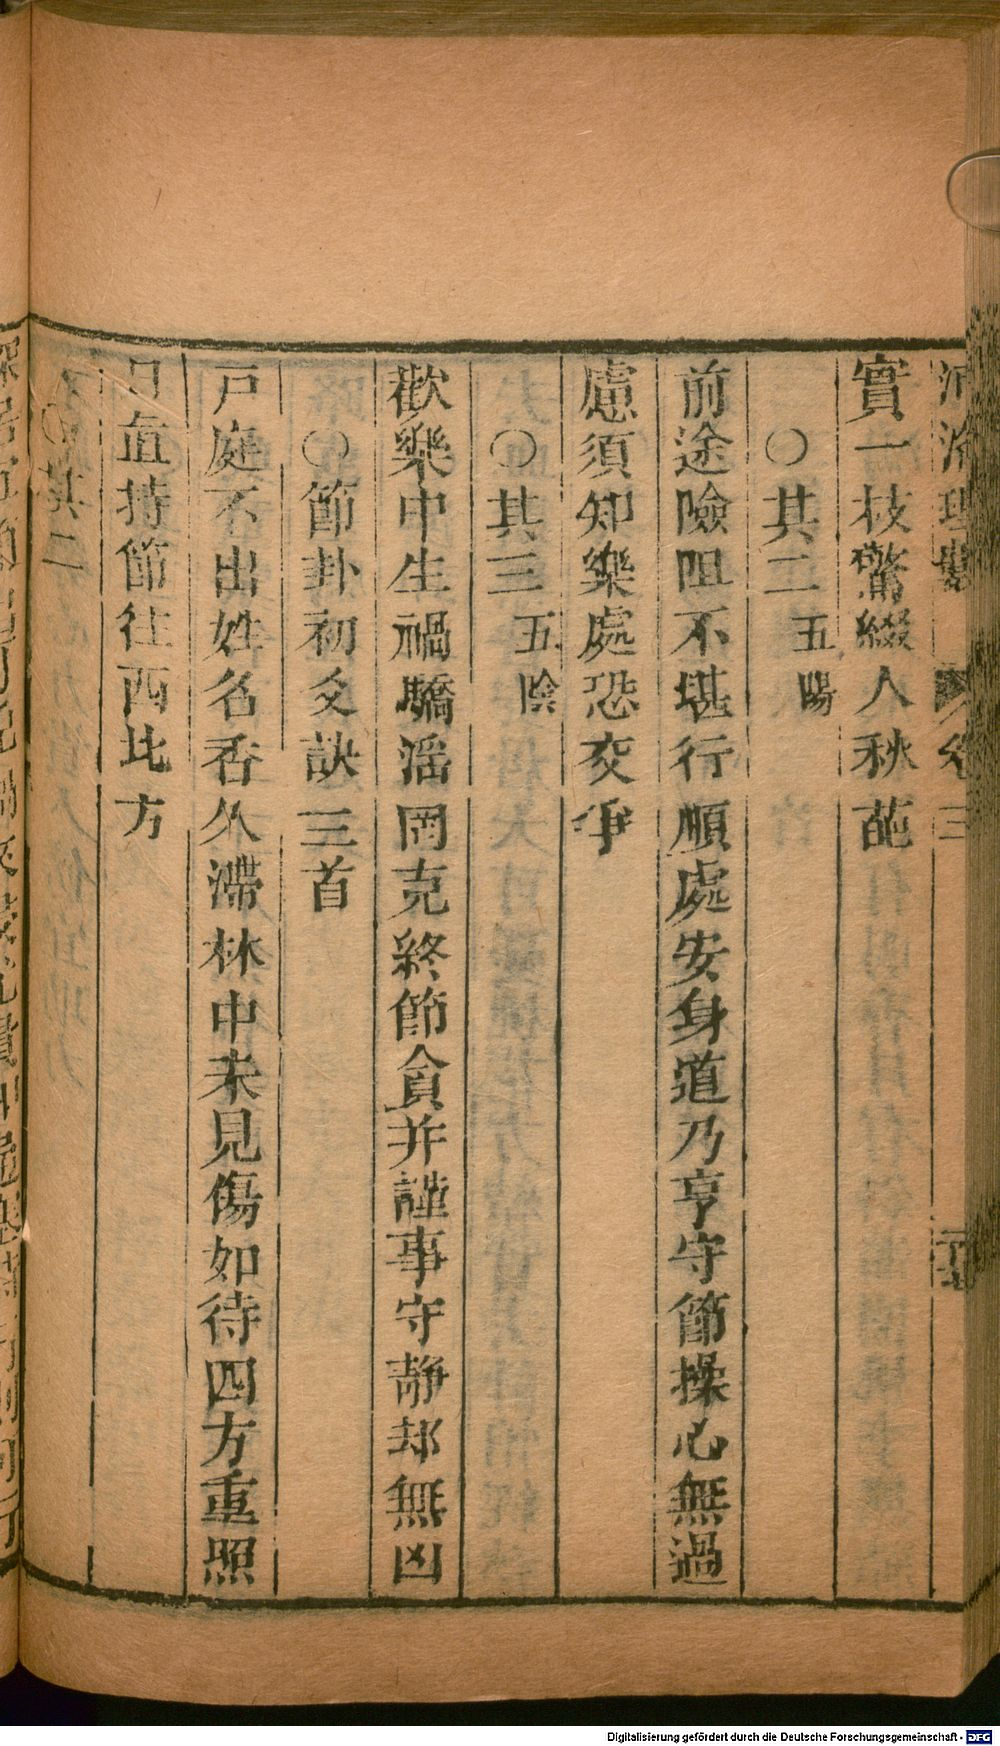 河洛理數 卷三
實一枝驚綴人秋葩
○其二 五陽
前途險阻不堪行順處安身道乃亨守節操心無過
慮須知樂處恐交爭
○其三 五陰
歡樂中生禍驕滛罔克終節貪并謹事守靜却無凶
○節卦初爻訣三首
戸庭不出姓名香久滯林中未見傷如待四方重照
日直持節往西北方
○其二
Digitalisierung gefördert durch die Deutsche Forschungsgemeinschaft - DFG